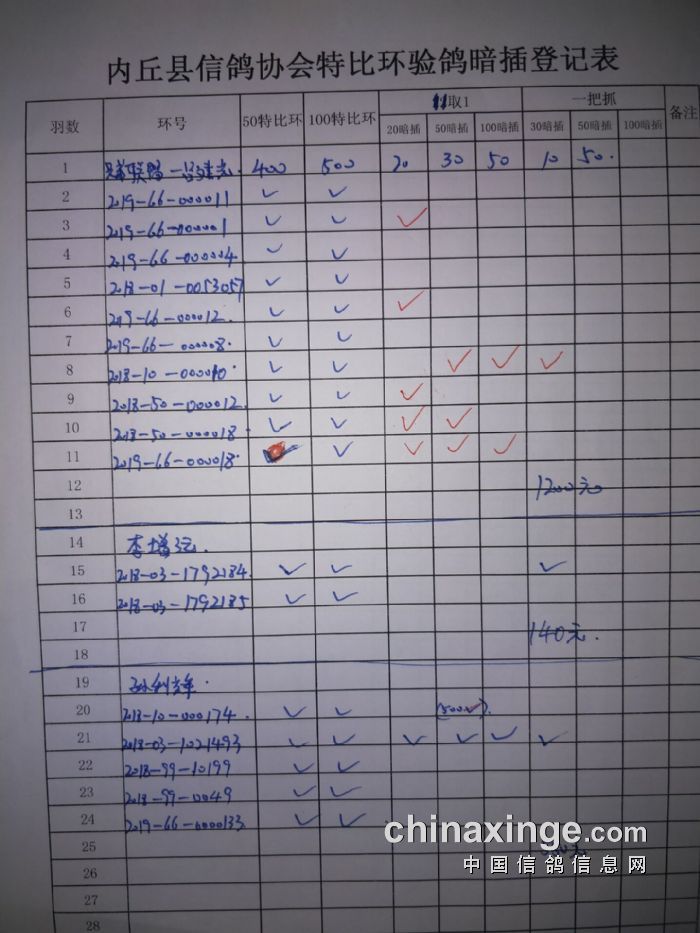 内丘县信鸽协会特比环验鸽暗插登记表
羽数 环号 50特比环 100特比环 取1 一把抓 备注
20暗插 50暗插 100暗插 30暗插 50暗插 100暗插
1 联盟 400 500 20 30 50 10 50.
2 2019-66-000011 ✓ ✓
3 2019-66-000001 ✓ ✓ ✓
4 2019-66-000004 ✓ ✓
5 2018-01-0053057 ✓ ✓
6 2019-66-000012. ✓ ✓ ✓
7 2019-66-000008. ✓ ✓
8 2018-10-000010. ✓ ✓ ✓ ✓ ✓
9 2018-50-000012. ✓ ✓ ✓
10 2018-50-000018. ✓ ✓ ✓ ✓
11 2019-66-000018. ✓ ✓ ✓ ✓
12 1200元
13
14 李增
15 2018-03-1792184. ✓ ✓ ✓
16 2018-03-1792185 ✓ ✓
17 140元.
18
19
20 2018-10-000174. ✓ ✓
21 2018-03-1021493 ✓ ✓ ✓ ✓ ✓ ✓
22 2018-99-10199 ✓ ✓
23 2018-99-0049 ✓ ✓
24 2019-66-0000133 ✓ ✓
25
26
27
28
chinaxinge.com
中国信鸽信息网